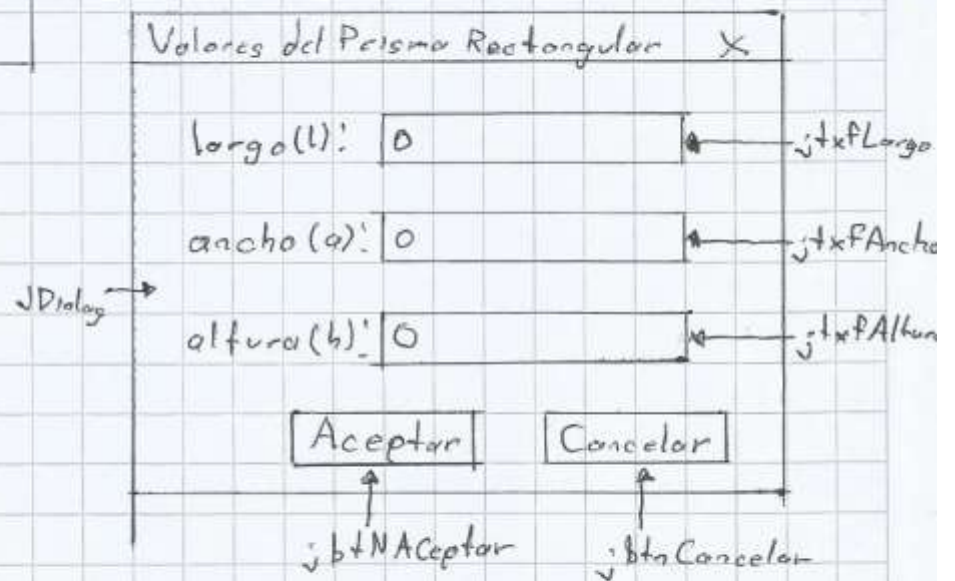 Valores del Prisma Rectangular X
largo(l): 0 jtxfLargo
ancho(a): 0 jtxfAncho
JDialog
altura(h): 0 jtxfAltur
Aceptar Cancelar
jbtNACeptar jbtnCancelar